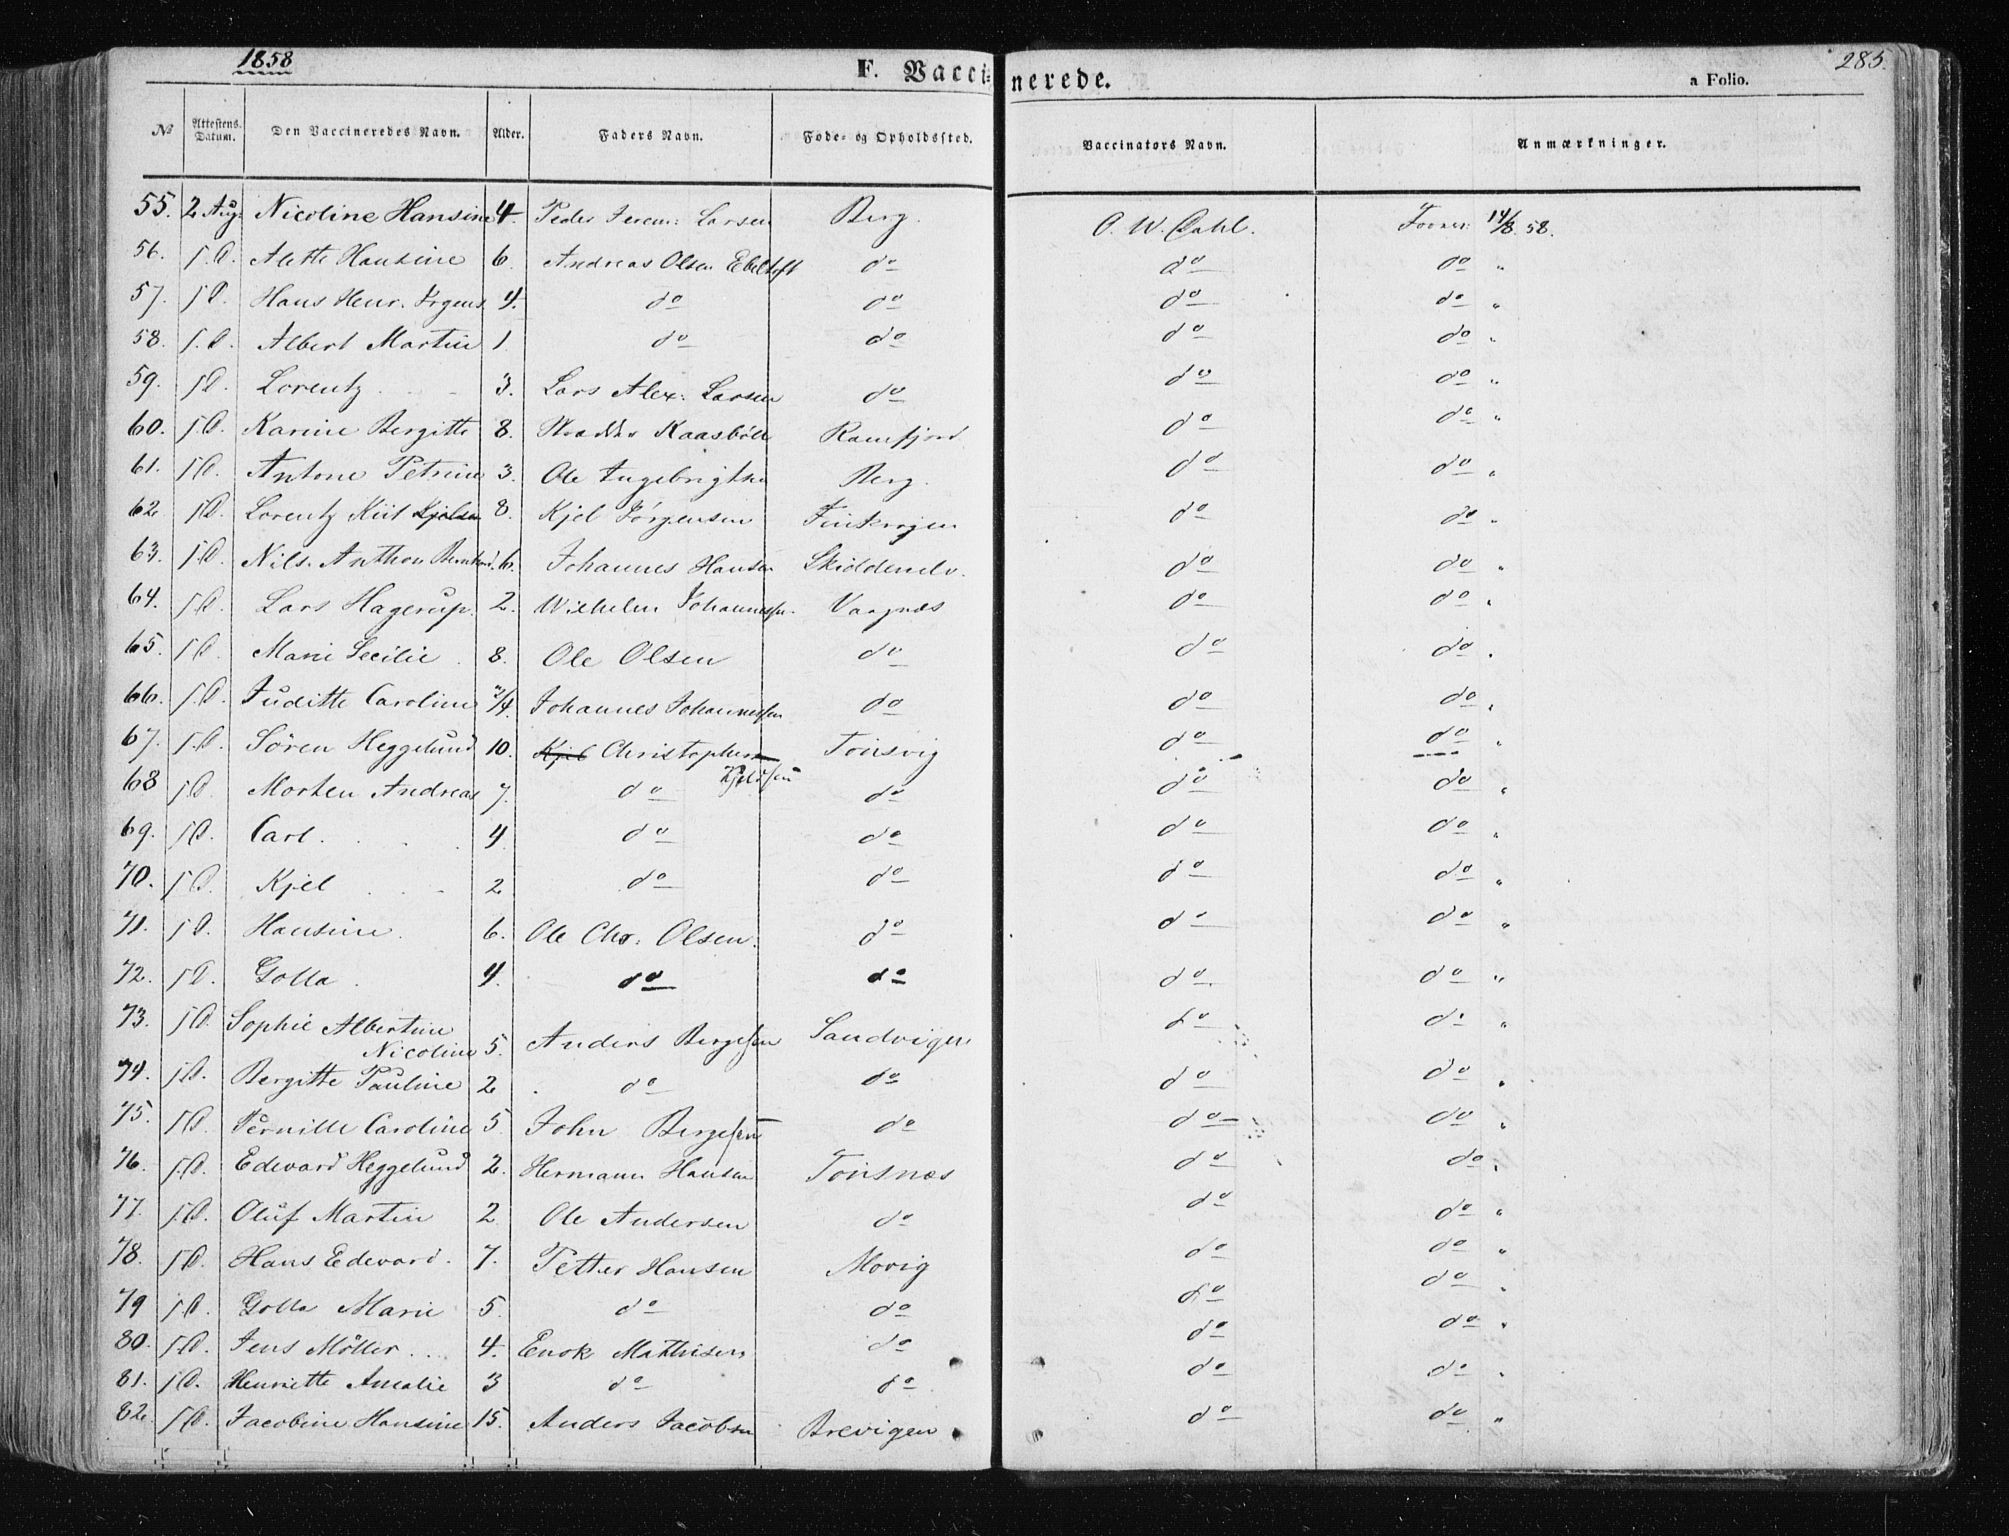 1858
F. Vaccinerede.
a Folio.
285.
No
Attestens Datum.
Den Vaccineredes Navn.
Alder.
Faders Navn.
Føde- og Opholdssted.
Vaccinators Navn.
Anmærkninger.
55. 2 Aug. Nicoline Hansine 4. Peder Jerem: Larsen Berg. O. W. Dahl. 14/8. 58.
56. s.D. Alette Hansine 6. Andreas Olsen Ebeltoft do do do "
57. s.D. Hans Henr. Jrgens 4. do do do do "
58. s.D. Albert Martin 1. do do do do "
59. s.D. Lorentz 3. Lars Alex: Larsen do do do "
60. s.D. Karine Bergitte 8. Kaasbøll Ramfjord do do "
61. s.D. Antone Petrine 3. Ole Ingebrigtsen Berg. do do "
62. s.D. Lorentz Kiil Kjelsen 8. Kjel Jørgensen Finkrogen do do "
63. s.D. Nils Anthon Bernhard. 6. Johannes Hansen Skiddenelv. do do "
64. s.D. Lars Hagerup. 2. Wilhelm Johannessen. Vagnæs do do "
65. s.D. Marie Cecilie 8. Ole Olsen do do do "
66. s.D. Juditte Caroline 3/4. Johannes Johannessen do do do "
67. s.D. Sören Heggelund 10. Kjel Christophersen Tonsvig do do "
Kjelsen
68 s.D. Morten Andreas 7. do do do do "
69. s.D. Carl. 4 do do do do "
70. s.D. Kjel 2 do do do do "
71. s.D. Hansine. 6. Ole Chr: Olsen. do do do "
72. s.D. Golla. 4. do do do do "
73. s.D. Sophie Albertine
Nicoline 5. Anders Bergesen Sandvigen do do "
74. s.D. Bergitte Pauline 2 do do do do "
75. s.D. Pernille Caroline 5. John Bergesen do do do "
76. s.D. Edevard Heggelund 2. Hermann Hansen Tonsnæs do do "
77. s.D. Oluf Martin 2 Ole Andersen do do do "
78. s.D. Hans Edevard. 7. Petter Hansen Movig do do "
79 s.D. Golla Marie 5. do do do do "
80. s.D. Jens Möller 4. Enok Mathisen do do do "
81. s.D. Henriette Amalie 3 do do do do "
82. s.D. Jacobine Hansine 15. Anders Jacobsen Brevigen do do "